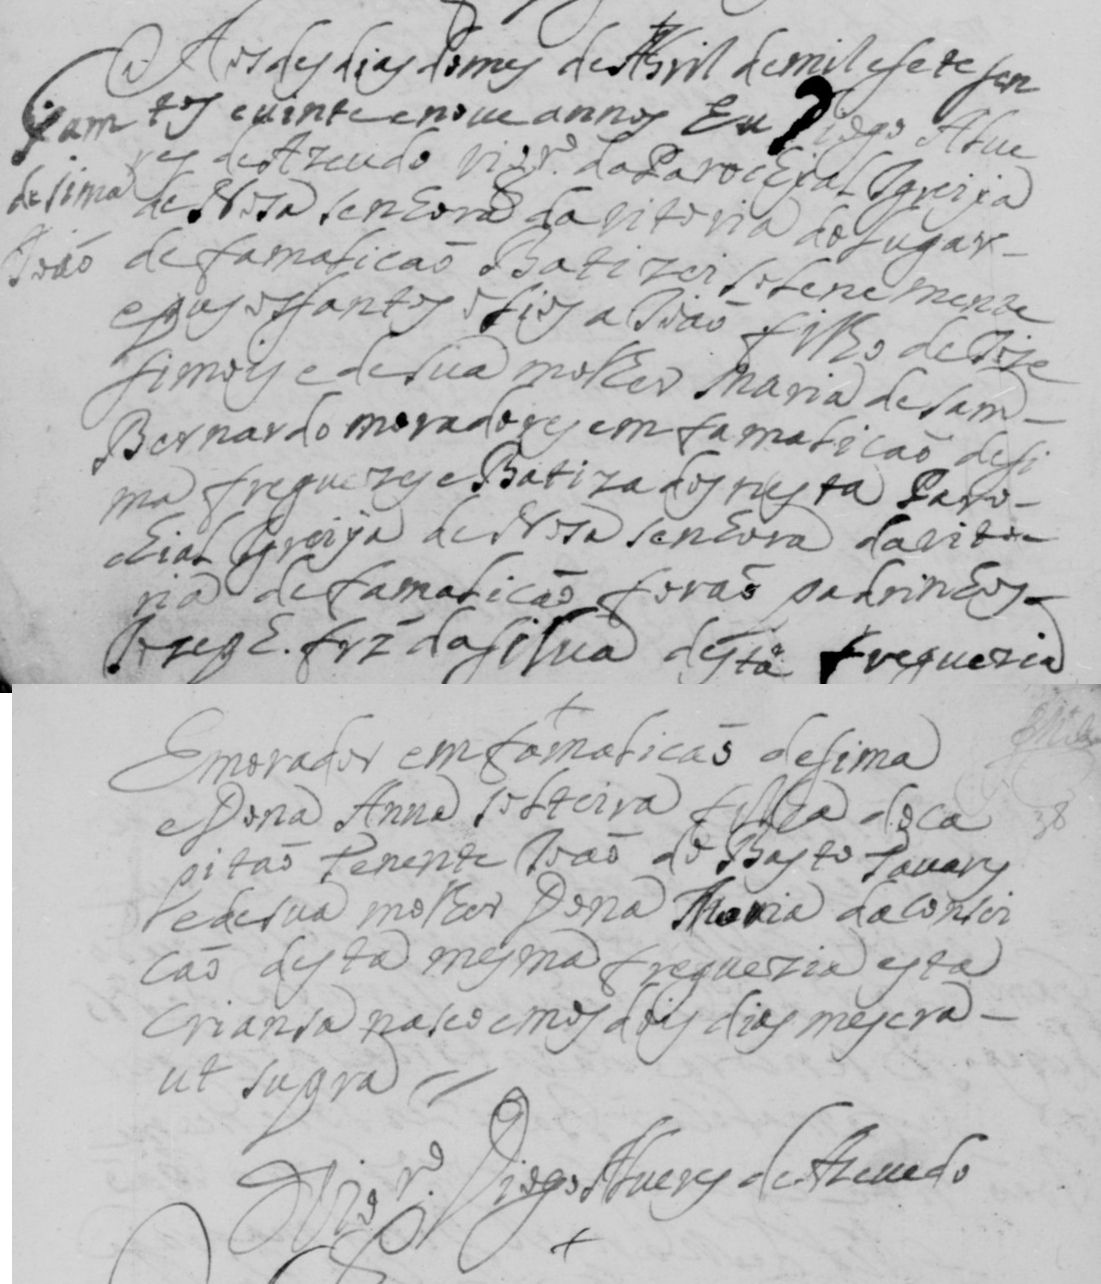 Aos des dias do mes de Abril de mil e sete sen
tos e uinte e noue annos Eu Diogo Alue
res de Azeuedo vigrº da Parochial Igreija
de Nosa senhora da vitoria do lugar
de famalicaõ Batizei solenemente
e pus os santos olios a Joaõ filho de Jose
simois e de sua molher Maria de sam
Bernardo moradores em famalicaõ desi
ma freguezes e Batizados nesta Paro
chial Igreija de Nosa senhora da vito
ria de famalicaõ foraõ padrinhos
frz da silua desta freguezia
Fam
desima
Joaõ
E morador em famalicaõ desima
e Dona Anna solteira filha do ca
pitaõ Tenente Joaõ do Basto Tauares
e de sua molher Dona Maria da consei
caõ desta mesma freguezia esta
criansa naseo em os dois dias mes era
ut supra //
38
O Vigrº Diogo Alueres de Azeuedo